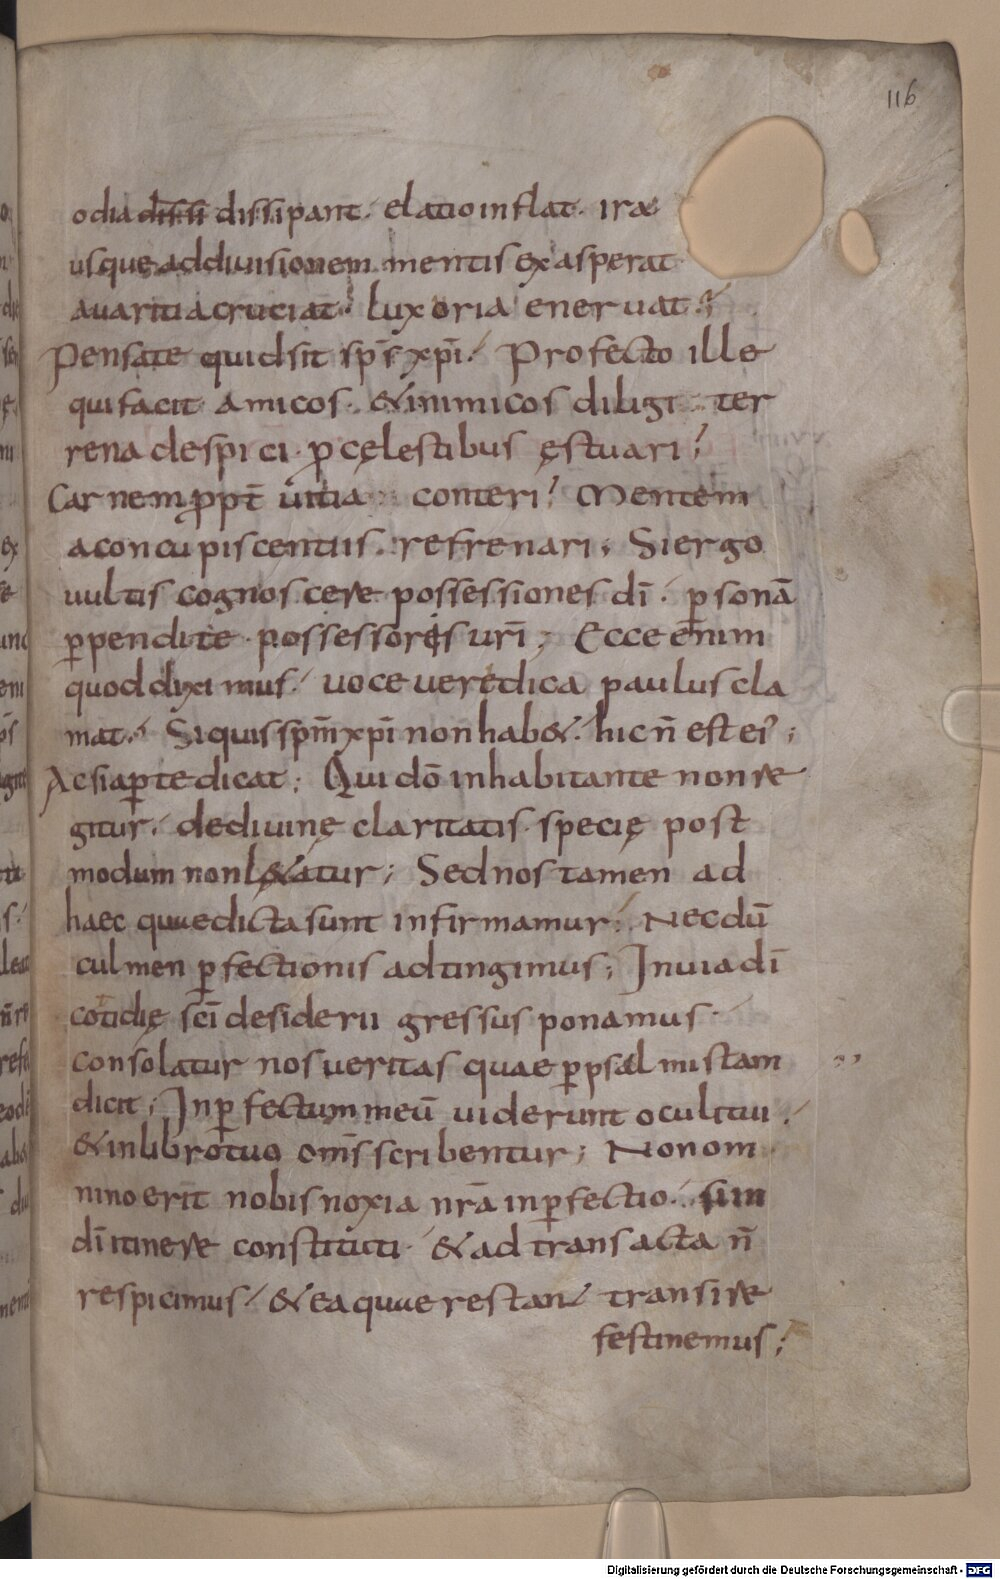 116
odia dissi dissipant. elatio inflat. ira
usque ad diuisionem mentis exasperat
auaritia cruciat. luxoria eneruat.
Pensate quid sit sps̄ xpī. Profecto ille
qui facit amicos. & inimicos diligi. ter
rena despici. ꝑ cęlestibus ęstuari?
Carnem ꝓpt̄ uitia conteri? Mentem
a concupiscentiis. refrenari; Si ergo
uultis cognoscere possessiones dī. ꝑsonā
ꝑpendite possessoris urī; Ecce enim
quod diximus. uoce ueredica paulus cla
mat. Si quis spm̄ xpī non hab&. hic n̄ est ei';
Ac si aꝑte dicat; Qui dō inhabitante non re
gitur. de diuinę claritatis specię post
modum non lętatur; Sed nos tamen ad
haec quae dicta sunt infirmamur. Necdū
culmen ꝑfectionis adtingimus; In uia dī
cotidię scī desiderii gressus ponamus.
consolatur nos ueritas quae ꝑ psalmistam
dicit; Inꝑfectum meū uiderunt oculi tui.
& in libro tuo om̄s scribentur; Non om
nino erit nobis noxia nr̄a inꝑfectio. si in
dī itinere constituti. & ad transacta n̄
respicimus. & ea quae restant transire
festinemus;
Digitalisierung gefördert durch die Deutsche Forschungsgemeinschaft - DFG